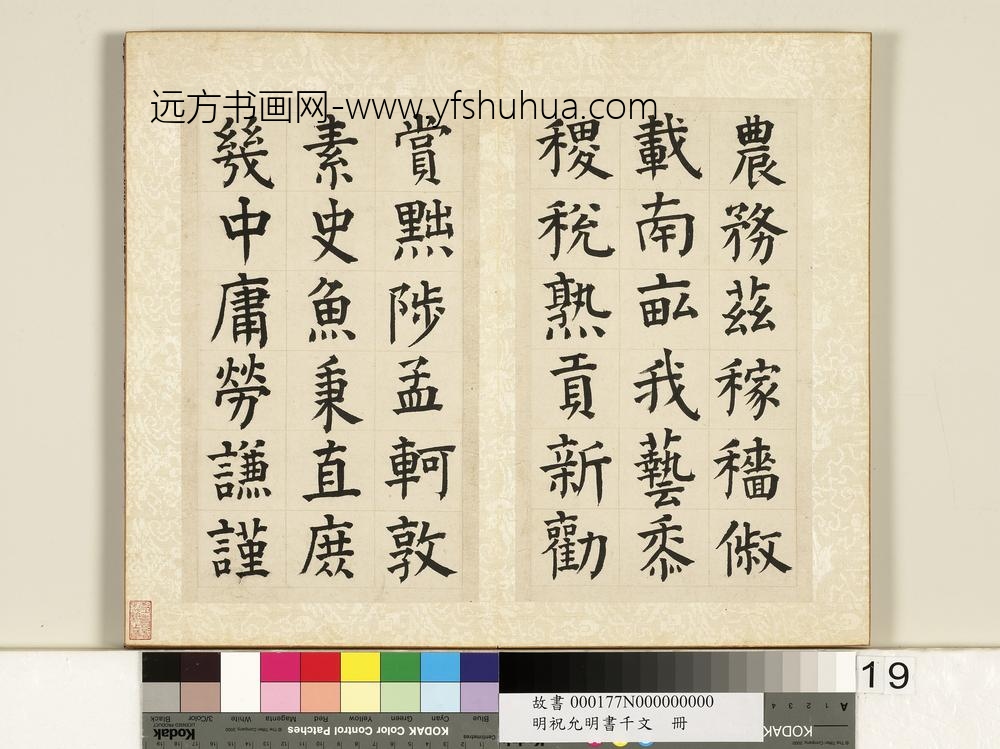 远方书画网-www.yfshuhua.com
農務茲稼穡俶
載南畝我藝黍
稷稅熟貢新勸
賞黜陟孟軻敦
素史魚秉直庶
幾中庸勞謙謹
19
故書 000177N000000000
明祝允明書千文 冊
Blue Cyan Green Yellow Red Magenta White 3/Color Black
KODAK Color Control Patches
Kodak
Centimetres
KODAK
A 1 2 3 4